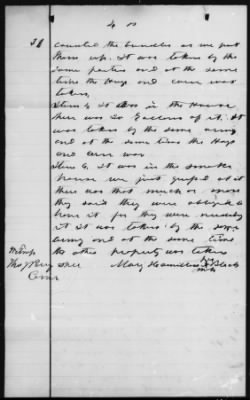 counted the bundles as we put
them up. It was taken by the
same parties and at the same
time the Hogs and corn was
taken,
Item 5 It was in the House
there was 20 Gallons of it. It
was taken by the same army
and at the same time the Hogs
and corn was
Item 6. It was in the smoke
house we just guessed at it
there was that much or more
they said they were obliged to
have it for they were needy
it was taken by the same
army and at the same time
the other property was taken
Mary Hamilton X Black
her
mark